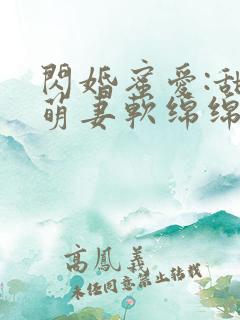 閃婚蜜愛:甜
萌妻軟綿綿
高鳳義
未经同意禁止转载